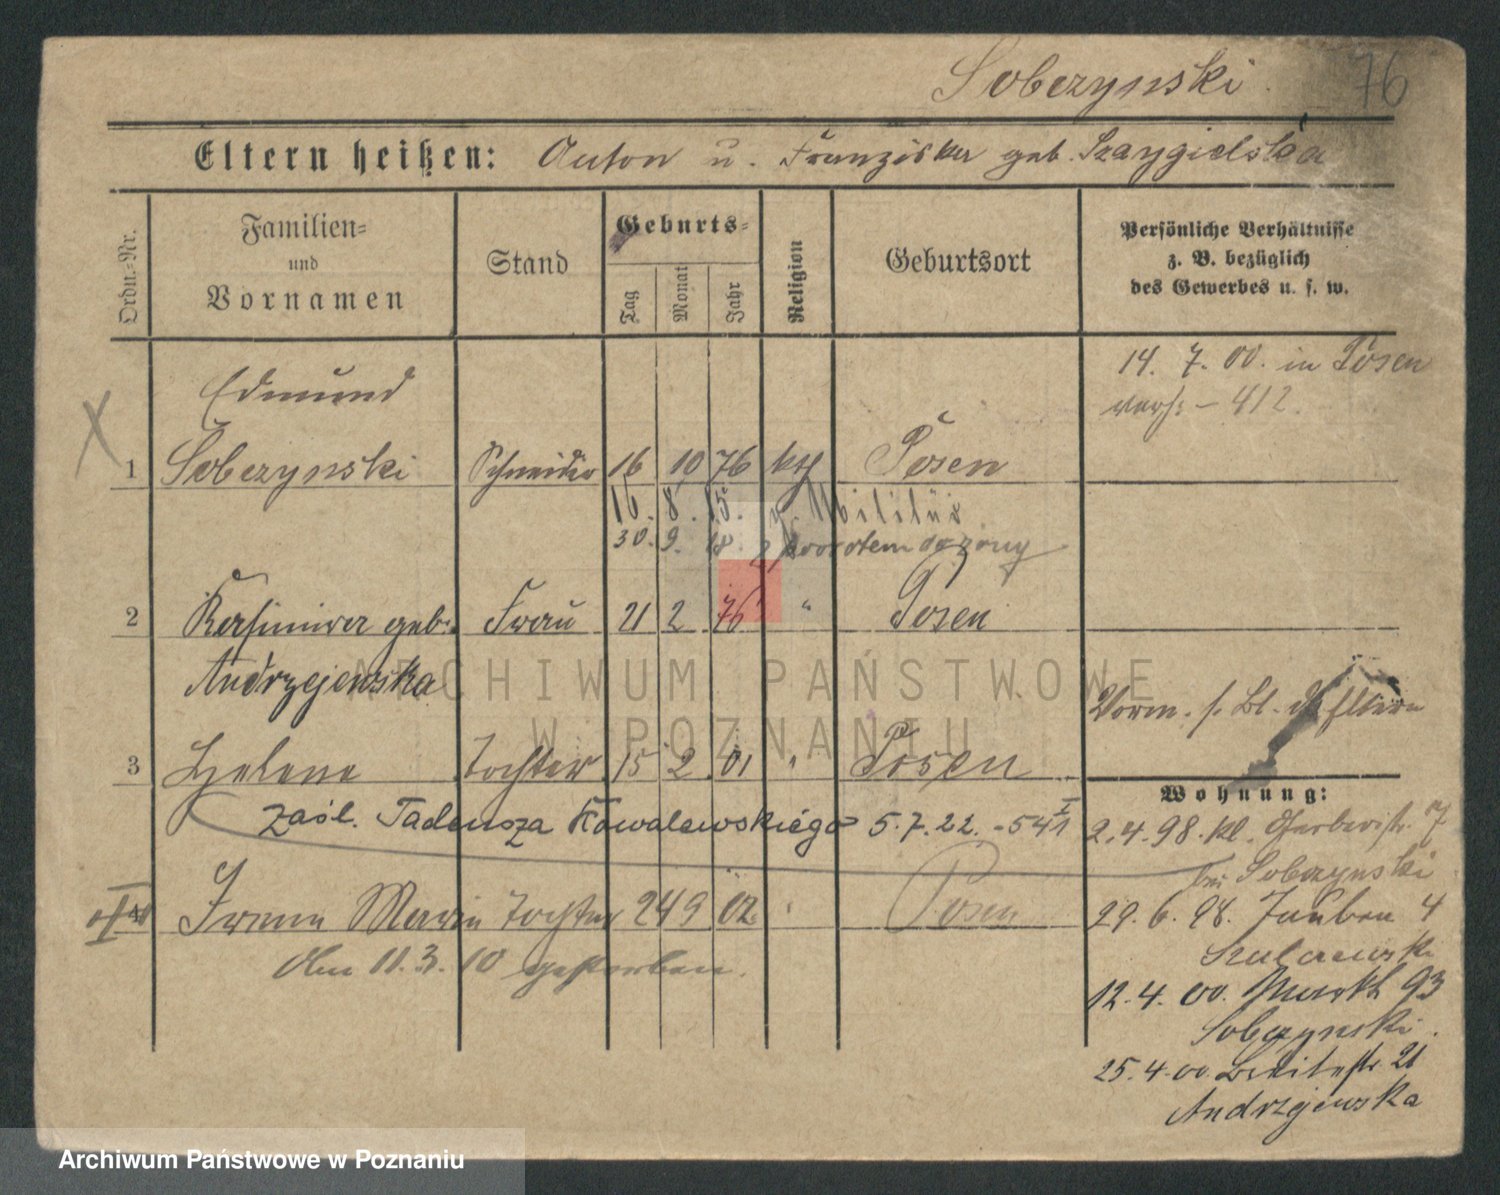 Sobczynski. 76
Eltern heißen: Anton u. Franziska geb. Szczygielska
Ordn.-Nr.
Familien-
und
Vornamen
Stand
Geburts-
Tag
Monat
Jahr
Religion
Geburtsort
Persönliche Verhältnisse
z. B. bezüglich
des Gewerbes u. s. w.
14. 7. 00. in Posen
verh. - 412.
Edmund
X 1 Sobczynski Schneider 16 10 76 kth Posen
16. 8. 15. z. Militär
30. 9. 18. z powrotem
2 Kasimira geb. Frau 21 2 76 " Posen
Andrzejewska
Vorm. s. Bl. d. Eltern
3 Helene Tochter 15 2 01 " Posen
zaśl. Tadeusza Kowalewskiego 5.7.22. - 541
Wohnung:
2. 4. 98. Kl. Gerberstr. 7
bei Sobczynski
4 Irene Marie Tochter 24 9 02. " Posen
Am 11. 3. 10 gestorben.
29. 6. 98. Tauben 4
12. 4. 00. Markt 93
Sobczynski.
25. 4. 00. Breitestr. 21
Andrzejewska
ARCHIWUM PAŃSTWOWE
W POZNANIU
Archiwum Państwowe w Poznaniu